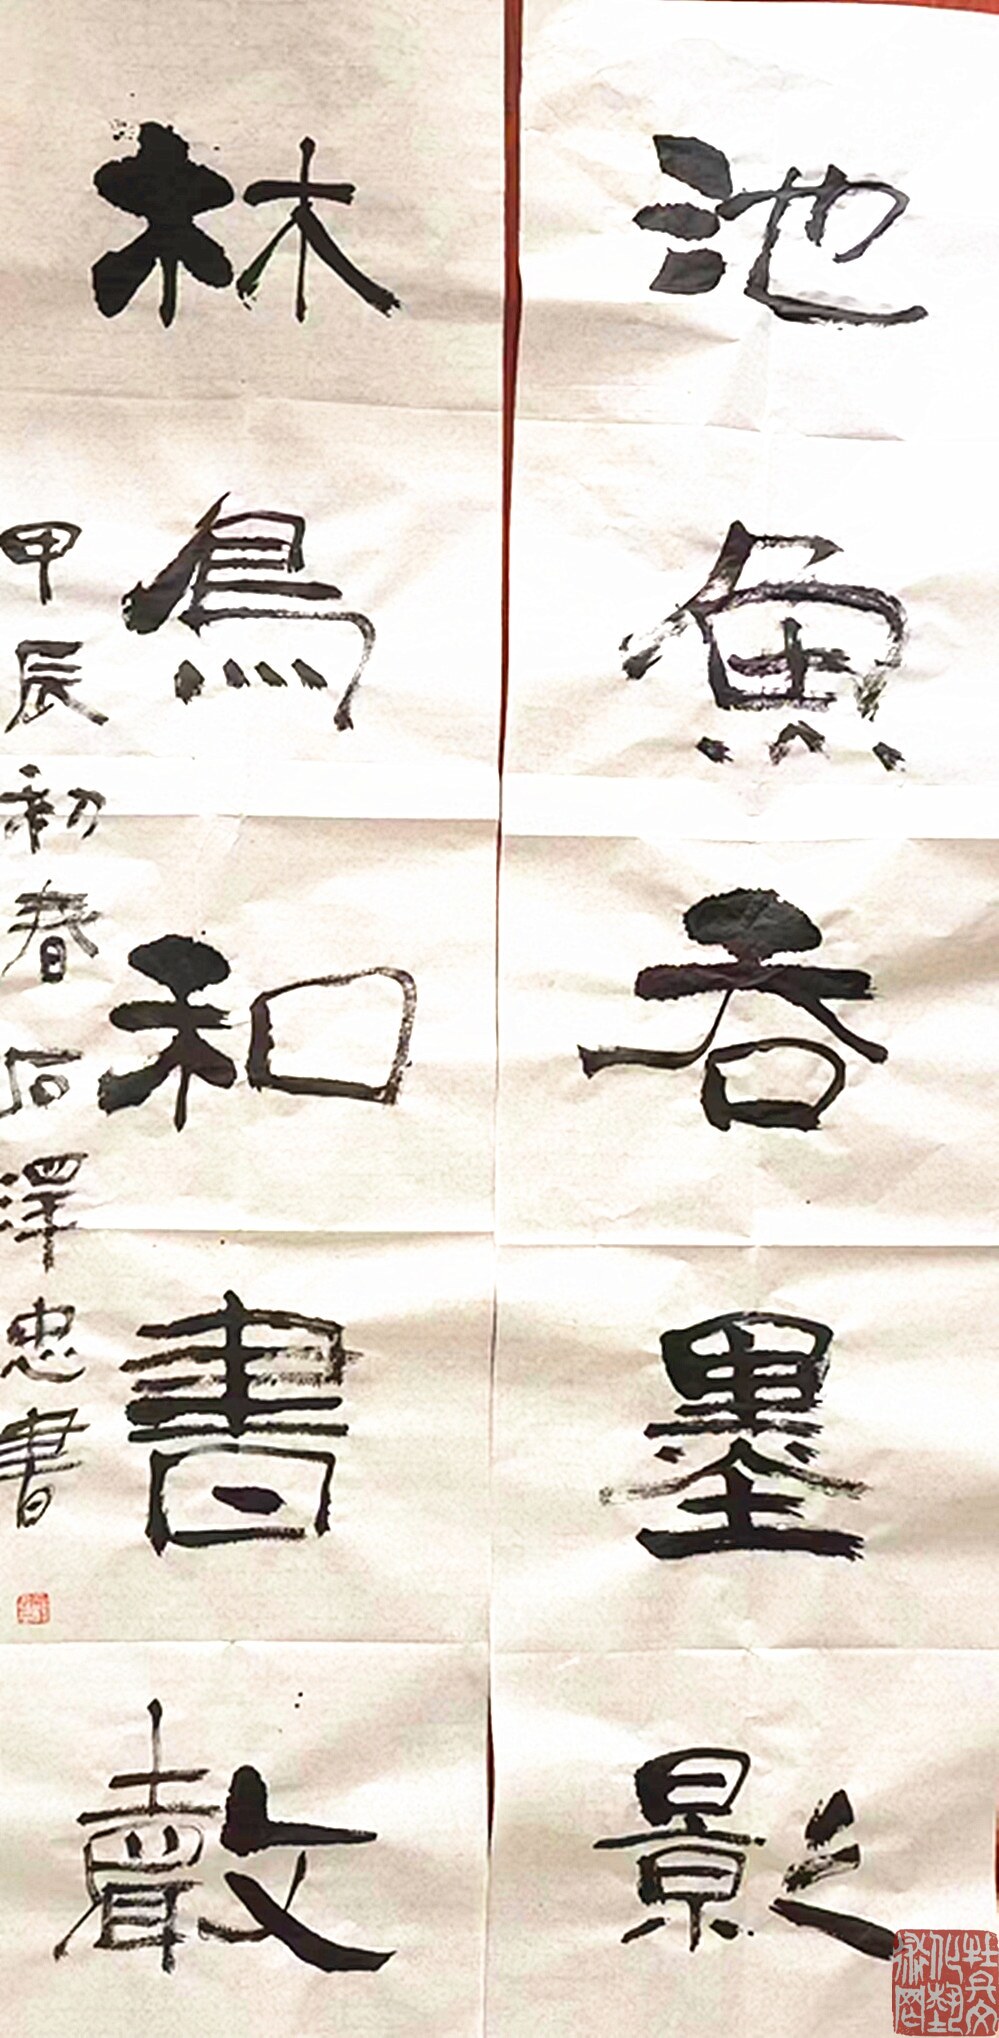 池魚吞墨影
林鳥和書聲
甲辰初春石澤忠書